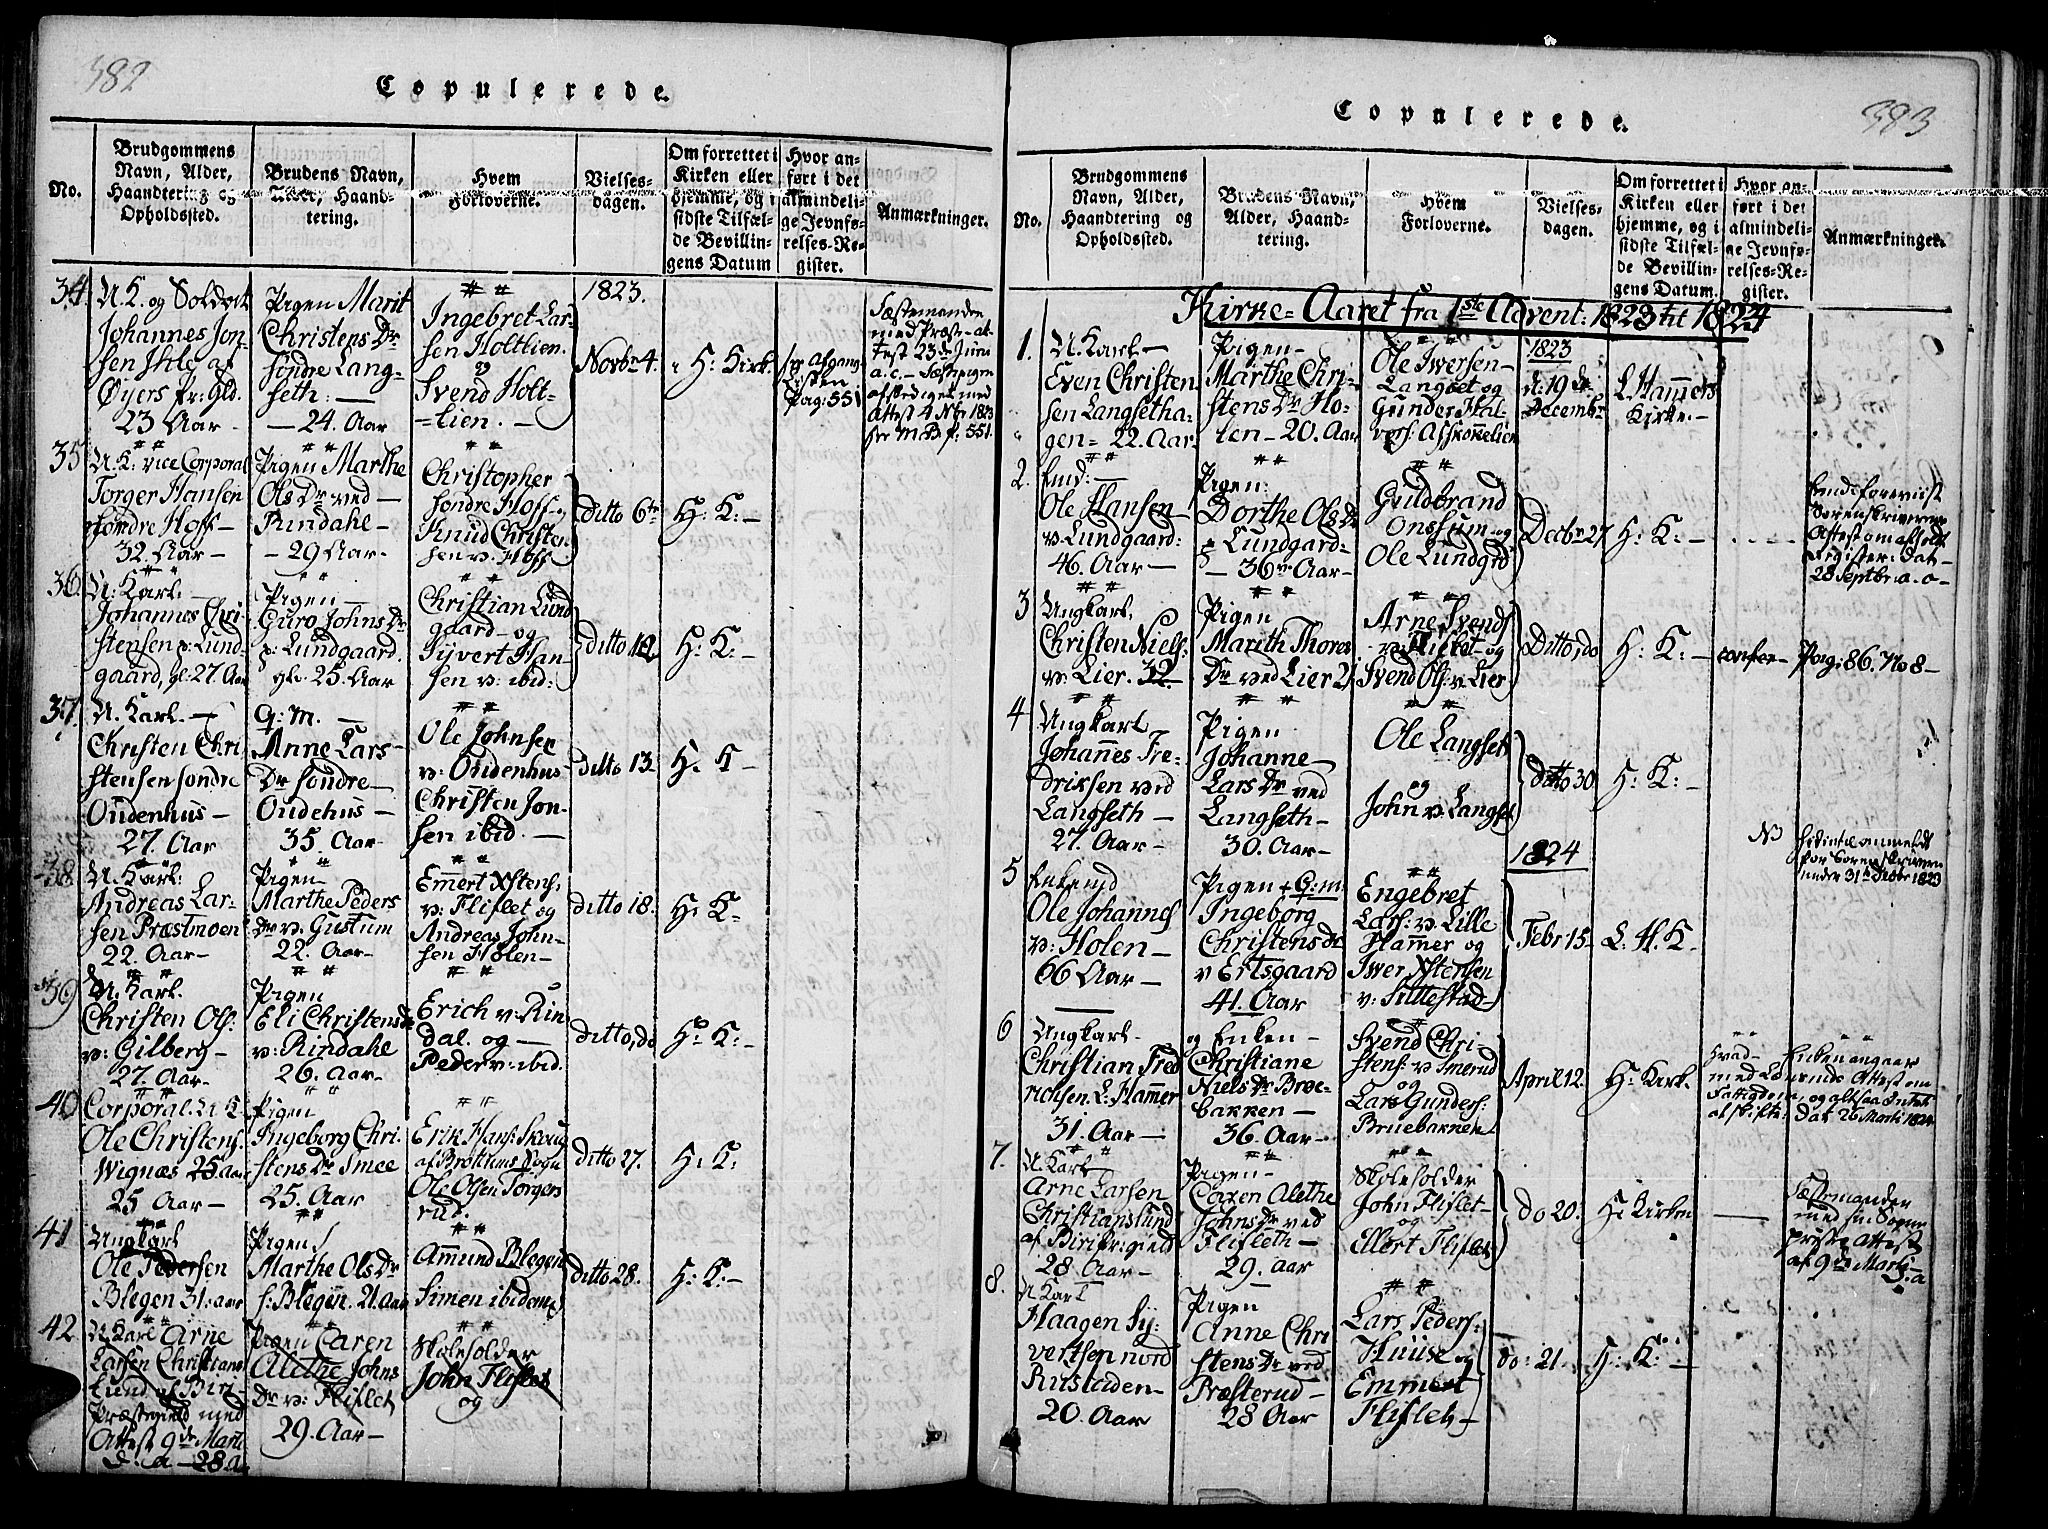 382
Copulerede.
No.
Brudgommens
Navn, Alder,
Haandtering og
Opholdssted.
Brudens Navn,
Alder, Haand-
tering.
Hvem
Forloverne.
Vielses-
dagen.
Om forrettet i
Kirken eller
hjemme, og i
sidste Tilfæl-
de Bevillin-
gens Datum
Hvor an-
ført i det
almindeli-
ge Jevnfø-
relses-Re-
gister.
Anmærkninger.
34.
U. K. og Soldat
Johannes Jon-
sen Ihle af
Øyers Pr: Gld.
23 Aar
Pigen Marit
Christens Dr
søndre Lang-
seth: —
— 24. Aar
Ingebret Lar-
sen Holtlien.
Svend Holt-
lien. —
1823.
Novbr 4.
H: Kirk.
Pag: 551
med Præste-at-
test 23de Juni
a. c. —
35.
U: K: vice Corporal
Torger Hansen
søndre Hoff —
32. Aar —
Pigen Marthe
Ols Dr ved —
Rindahl —
— 29 Aar —
Christopher
søndre Hoff —
Knud Christen
sen v. Hoff
Ditto 6te
H: K: —
36.
U: Karl. —
Johannes Chri-
stensen p: Lund-
gaard, gl: 27. Aar
Pigen —
Guro Johns Dr
p: Lundgaard.
gl. 25. Aar
Christian Lund
gaard — og
Syvert Han-
sen v: ibid:
Ditto 12
H: K: —
37.
U. Karl. —
Christen Chri
stensen søndre
Oudenhus —
27. Aar
G: M. —
Anne Lars —
Dr søndre —
Oudehus —
35. Aar
Ole Johnsen
v: Oudenhus —
Christen Jon-
sen ibid. —
Ditto 13.
H. K —
38
U. Karl:
Andreas Lar-
sen Præstmoen
22. Aar —
Pigen —
Marthe Peders
Dr v. Gustum
22. Aar —
Emert Xstens.
v: Fliflet og
Andreas John-
sen Holen —
Ditto 18.
H: K —
39
U. Karl.
Christen Ols:
v: Gilberg —
27. Aar —
Pigen
Eli Christens dr
v: Rindahl
26. Aar —
Erich v: Rin
dal. og —
Peder v: ibid.
Ditto, do
H: K: —
40
Corporal. U: K
Ole Christens.
Wignæs 25 aar
25 Aar —
Pigen
Ingeborg Chri-
stens Dr Smee
25. Aar
Erik Hans: Skoug
af Brøttums Sogn
Ole Olsen Torgers
rud.
Ditto 27.
H: K:
41
Ungkarl
Ole Pedersen
Blegen 31: aar
Pigen
Marthe Ols Dr
s: Blegen. 21. aar
Amund Blegen
Simen ibidem
Ditto 28.
H: K: —
42
U. Karl Arne
Larsen Christians
Lund af Biri —
Præstegield med
Attest 9de Marti
d. a — 28. a.
Pigen Caren
Alethe Johns
Dr v: Fliflet
29. Aar —
Skoleholder
John Fliflet
og
383
Copulerede.
No.
Brudgommens
Navn, Alder,
Haandtering og
Opholdssted.
Brudens Navn,
Alder, Haand-
tering.
Hvem
Forloverne.
Vielses-
dagen.
Om forrettet i
Kirken eller
hjemme, og i
sidste Tilfæl-
de Bevillin-
gens Datum.
Hvor an-
ført i det
almindeli-
ge Jevnfø-
relses-Re-
gister.
Anmærkninger.
Kirke-Aaret fra 1ste Advent: 1823 til 1824
1.
U. Karl —
Even Christen
sen Langsetha-
gen — 22. Aar
Pigen —
Marthe Chri-
stens Dr Ho-
len — 20. Aar
Ole Iversen —
Langset og
Gunder Hal-
vors: Asskokelien
1823
d: 19de
Decembr
L. Hamers
Kirke. —
2.
Ole Hansen —
v: Lundgaard:
46. Aar —
Pigen:
Dorthe Ols Dr
p Lundgard —
— 36 Aar —
Guldbrand
Onssum og
Ole Lundgrd
Decbr 27
H: K: —
Sorenskriverens
Attest om afholdt
Register: Dat —
28 Septbr. a. o —
3
Ungkarl.
Christen Niels:
v: Lier. 32.
Pigen
Marith Thores
Dr ved Lier 21
Arne Svends
v: Fliflet — og
Svend Ols: v: Lier
Ditto, do
H: K: —
confer —
Pag: 86. No 8 —
4
Ungkarl
Johannes Fre-
driksen ved
Langseth —
27. Aar —
Pigen
Johanne —
Lars Dr ved
Langseth —
30. Aar —
Ole Langset
og
John v: Langset
Ditto 30
H: K: —
5
Enkemd
Ole Johannes
v: Holen —
66 Aar —
Pigen + G: m:
Ingeborg
Christens dr
v Ertsgaard
41. Aar
Engebret
Lars: v. Lille
Hammer og
Iwer Xstensen
v: Sillestad —
1824
Febr 15.
L. H. K —
NB
for Sorenskriveren
under 31te Decbr 1823
6
Ungkarl —
Christian Fred
richsen. L: Hammer
31. Aar —
og Enken —
Christiane
Niels Dr Brue-
bakken —
36. Aar —
Svend Chri-
stens: v: Smerud
og
Lars Gunders:
Bruebakken
April 12.
H: Kirk.
Hvad Enken angaaer
med Lensmds Attest om
Fattigdom, og altsaa Intet
at skifte: Dat 26 Marti 1824
7.
U. Karl
Arne Larsen
Christianslund
af Biri Pr: gield
28 Aar —
Pigen —
Caren Alethe
Johns Dr ved
Flifleth —
29. Aar
Skoleholder
John Fliflet —
og
Ellert Fliflet
Do 20.
H: Kirken
Fæstemanden
med sin Sogne
præsts Attest
af 9de Marti
d. a
8.
U Karl
Haagen Sy-
vertsen nord
Rustaden —
20. Aar
Pigen
Anne Chri
stens Dr ved
Præsterud —
28 Aar
Lars Peders:
Huuse og
Emmert
Fliflet —
do: 21.
H: K: —